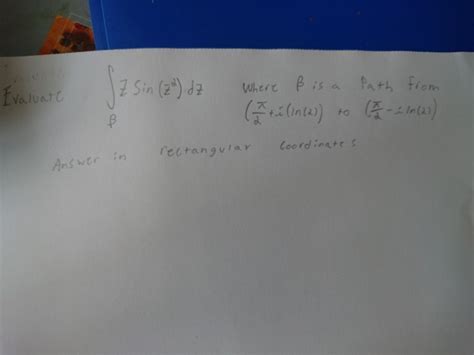 Evaluate ∫_β z sin(z²) dz where β is a path from
(π/2 + i(ln(2)) to (π/2 - i ln(2))
Answer in rectangular coordinates